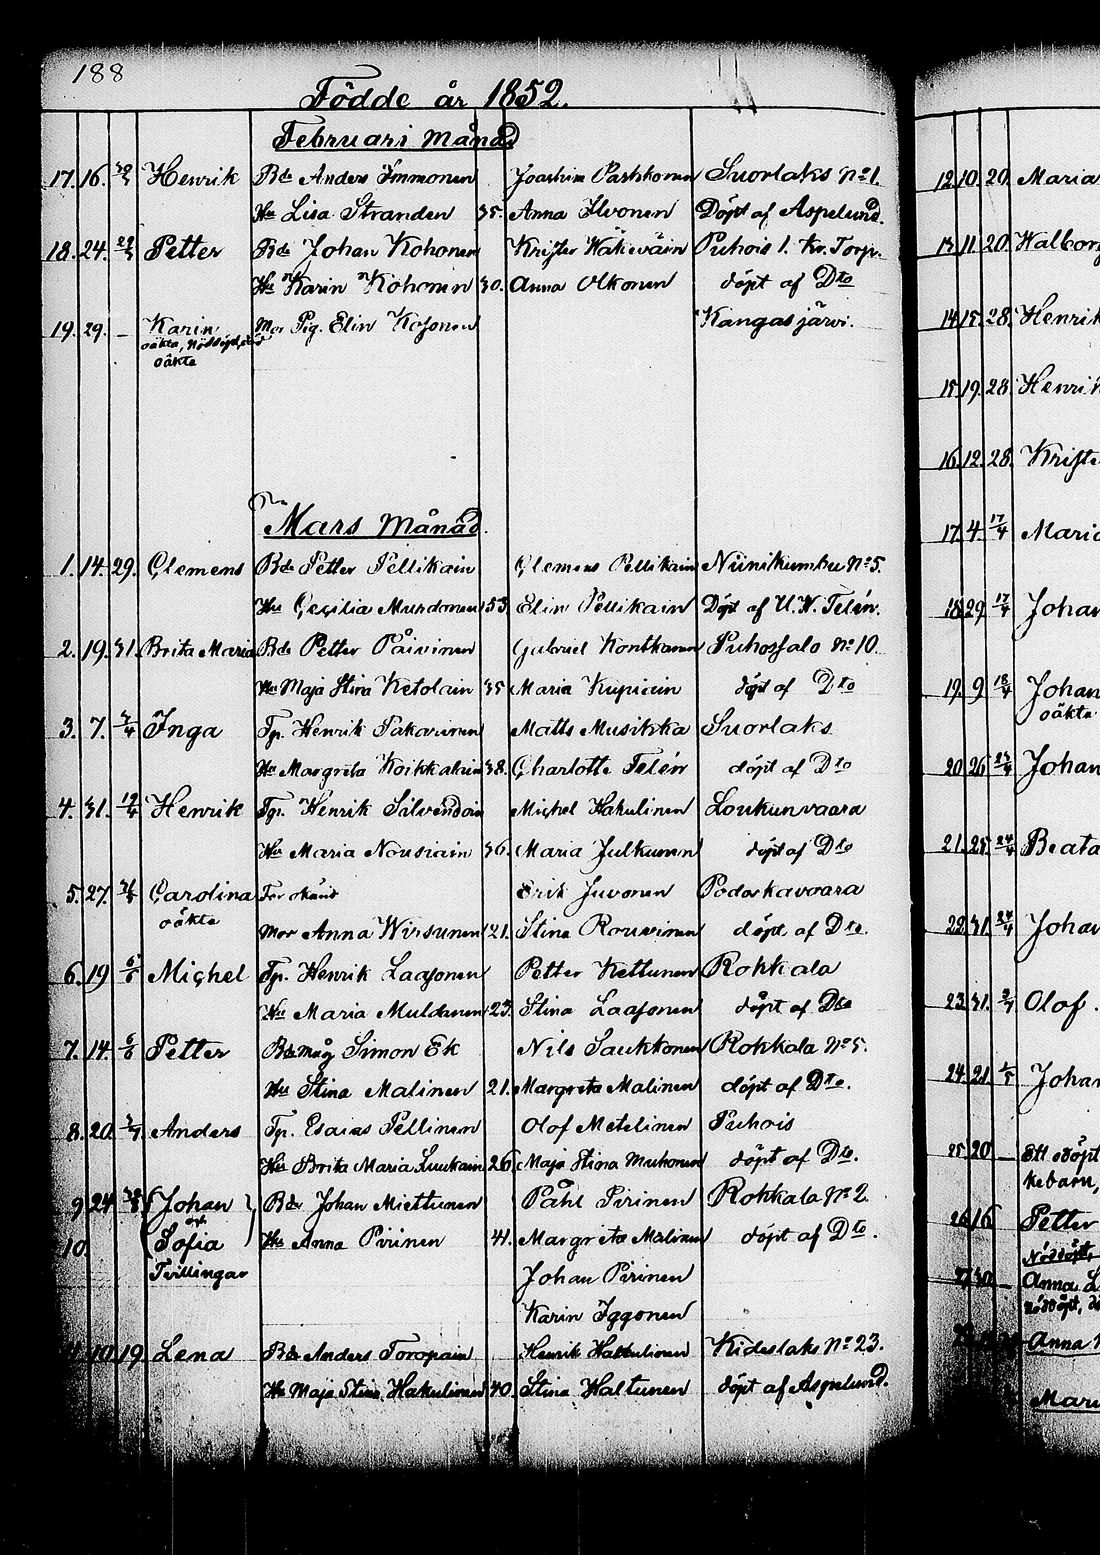 188
Födde år 1852.
Februari Månad
17. 16. Henrik Bde Anders Immonen Joachim Pashkonen Suorlaks No 1.
Hu Lisa Stranden 35. Anna Ilvonen Döpt af Aspelund.
18. 24. Petter Bde Johan Kohonen Krister Häkeväin Puhois 1. Kr. Torp.
Hu Karin Kohonen 30. Anna Olkonen döpt af Dto
19. 29. – Karin Mor Pig. Elin Kosonen Kangasjärvi.
oäkta, Nöddöpt,
oäkta
Mars Månad.
1. 14. 29. Clemens Bde Petter Pellikain Clemens Pellikain Niinikumbu No 5.
Hu Cecilia Mursdonen 53. Elin Pellikain Döpt af U. W. Telén.
2. 19. 31. Brita Maria Bde Petter Päivinen Gabriel Kontkanen Puhossalo No 10.
Hu Maja Stina Ketolain 35 Maria Kupiain döpt af Dto
3. 7. Inga Tp. Henrik Pakarinen Matts Musikka Suorlaks
Hu Margreta Koikkalain 38. Charlotte Telén döpt af Dto
4. 31. Henrik Tp. Henrik Silvendoin Michel Hakulinen Loukunvaara
Hu Maria Nousiain 36. Maria Julkunen döpt af Dto
5. 27. Carolina Far okänd Erik Juvonen Podoskavaara
oäkta
Mor Anna Wirsunen 21. Stina Rouvinen döpt af Dto.
6. 19 6/6 Michel Tp. Henrik Laasonen Petter Kettunen Rohkala
Hu Maria Muldanen 23. Stina Laasonen döpt af Dto
7. 14. 6/6 Petter Bde måg Simon Ek Nils Saukkonen Rohkala No 5.
Hu Stina Malinen 21. Margreta Malinen döpt af Dto.
8. 20. Anders Tp. Esaias Pellinen Olof Metelinen Puhois
Hu Brita Maria Luukain 26 Maja Stina Muhonen döpt af Dto.
9 24 Johan Bde Johan Miettunen Påhl Pirinen Rohkala No 2
och
10. Sofia Hu Anna Pirinen 41. Margreta Malinen döpt af Dto.
Tvillingar Johan Pirinen
Karin Iggonen
10. 19. Lena Bde Anders Toropain Henrik Hakkulinen Kideslaks No 23.
Hu Maja Stina Hakulinen 40. Stina Haltunen döpt af Aspelund.
12. 10. 20. Maria
13. 11. 20. Walborg
14. 15. 28. Henrik
15. 19. 28. Henrik
16. 12. 28. Krister
17. 4 17/4 Maria
18. 29 17/4 Johan
19. 9 18/4 Johan
oäkta
20. 26 Johan
21. 25. Beata
22. 31. Johan
23. 31. Olof
24. 21. Johan
25. 20 – Ett odöpt
26. 16 Petter
Nöddöpt,
30 – Anna
nöddöpt,
Anna